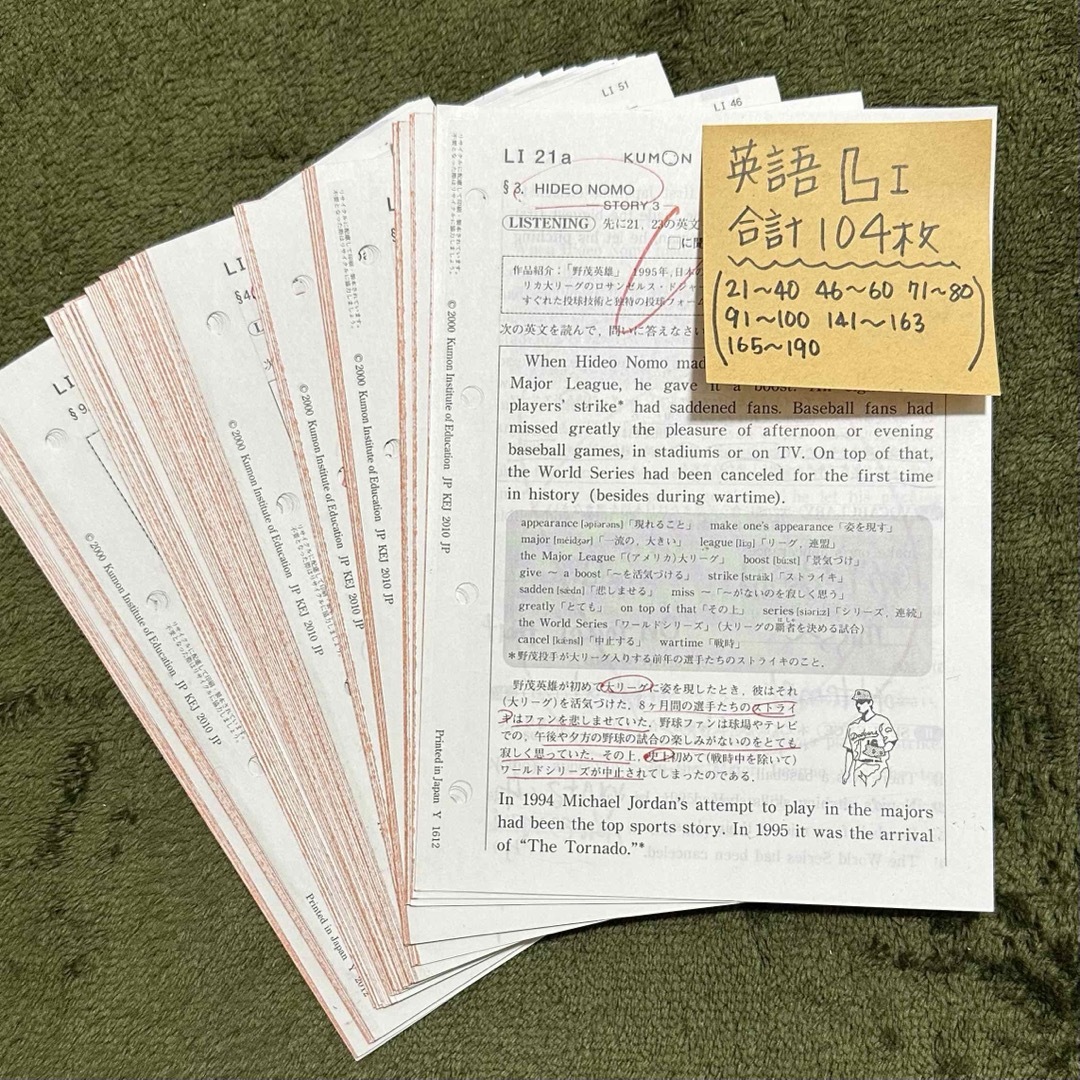 LI 51
LI 46
LI 21a
KUMON
§3. HIDEO NOMO
STORY 3
LISTENING 先に21, 23の英文
□に関
作品紹介:「野茂英雄」 1995年,日本の
リカ大リーグのロサンゼルス・ドジャ
すぐれた投球技術と独特の投球フォーム
次の英文を読んで,問いに答えなさい
When Hideo Nomo mad
Major League, he gave it a boost.
players' strike* had saddened fans. Baseball fans had
missed greatly the pleasure of afternoon or evening
baseball games, in stadiums or on TV. On top of that,
the World Series had been canceled for the first time
in history (besides during wartime).
appearance [əpíərəns]「現れること」 make one's appearance「姿を現す」
major [méidʒər]「一流の,大きい」 league [li:g]「リーグ,連盟」
the Major League「(アメリカ)大リーグ」 boost [bu:st]「景気づけ」
give ~ a boost「~を活気づける」 strike [stráik]「ストライキ」
sadden [sǽdn]「悲しませる」 miss ~「~がないのを寂しく思う」
greatly「とても」 on top of that「その上」 series [síəri:z]「シリーズ,連続」
the World Series「ワールドシリーズ」(大リーグの覇者を決める試合)
cancel [kǽnsl]「中止する」 wartime「戦時」
*野茂投手が大リーグ入りする前年の選手たちのストライキのこと.
野茂英雄が初めて大リーグに姿を現したとき,彼はそれ
(大リーグ)を活気づけた.8ヶ月間の選手たちのストライ
キはファンを悲しませていた.野球ファンは球場やテレビ
での,午後や夕方の野球の試合の楽しみがないのをとても
寂しく思っていた.その上,史上初めて(戦時中を除いて)
ワールドシリーズが中止されてしまったのである.
In 1994 Michael Jordan's attempt to play in the majors
had been the top sports story. In 1995 it was the arrival
of "The Tornado."*
英語 LI
合計104枚
(21~40 46~60 71~80
91~100 141~163
165~190)
© 2000 Kumon Institute of Education JP KEJ 2010 JP
Printed in Japan Y 1612
© 2000 Kumon Institute of Education JP KEJ 2010 JP
© 2000 Kumon Institute of Education JP KEJ 2010 JP
LI
§4
© 2000 Kumon Institute of Education JP KEJ 2010 JP
LI
§9
© 2000 Kumon Institute of Education JP KEJ 2010 JP
Printed in Japan Y 2012